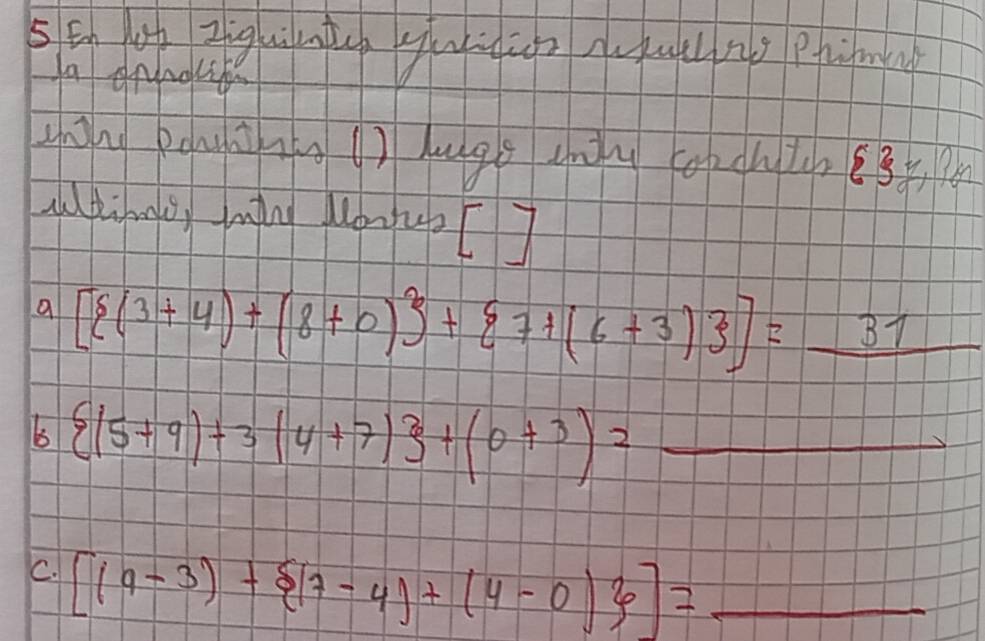 5 En los ziguientes ejercicios resuelbo Primero
la operación
entre parentesis () luego entre corchetes {} y, Por
ultimo, entre llaves [ ]
a [{(3+4)+(8+0)}+{7+(6+3)}]= 31
b {(5+9)+3(4+7)}+(0+3)=
c. [(9-3)+{(7-4)+(4-0)}]=